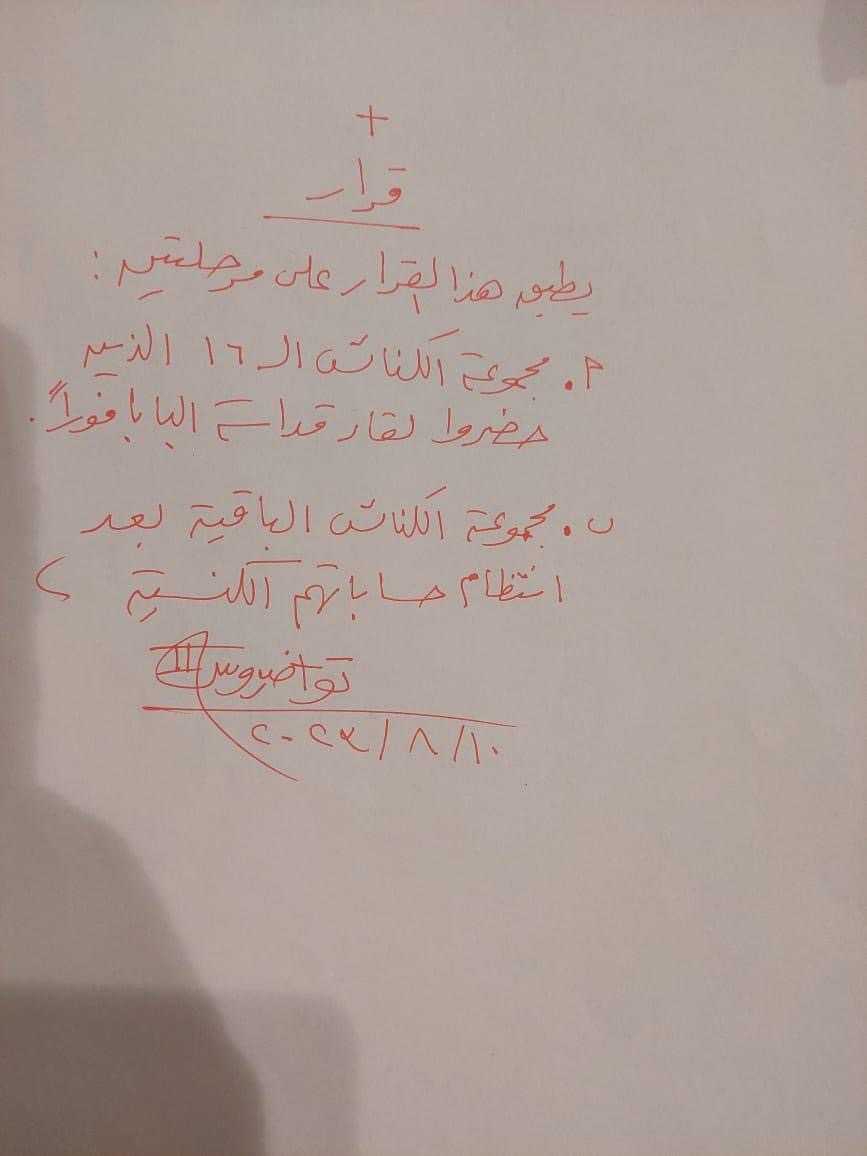 +
قرار
يطبق هذا القرار على مرحلتين :
أ. مجموعة الكنائس الـ ١٦ الذين
حضروا لقاء قداسة البابا فوراً.
ب. مجموعة الكنائس الباقية بعد
انتظام حساباتهم الكنسية
تواضروس II
١٠/ ٨ /٢٠٢٣